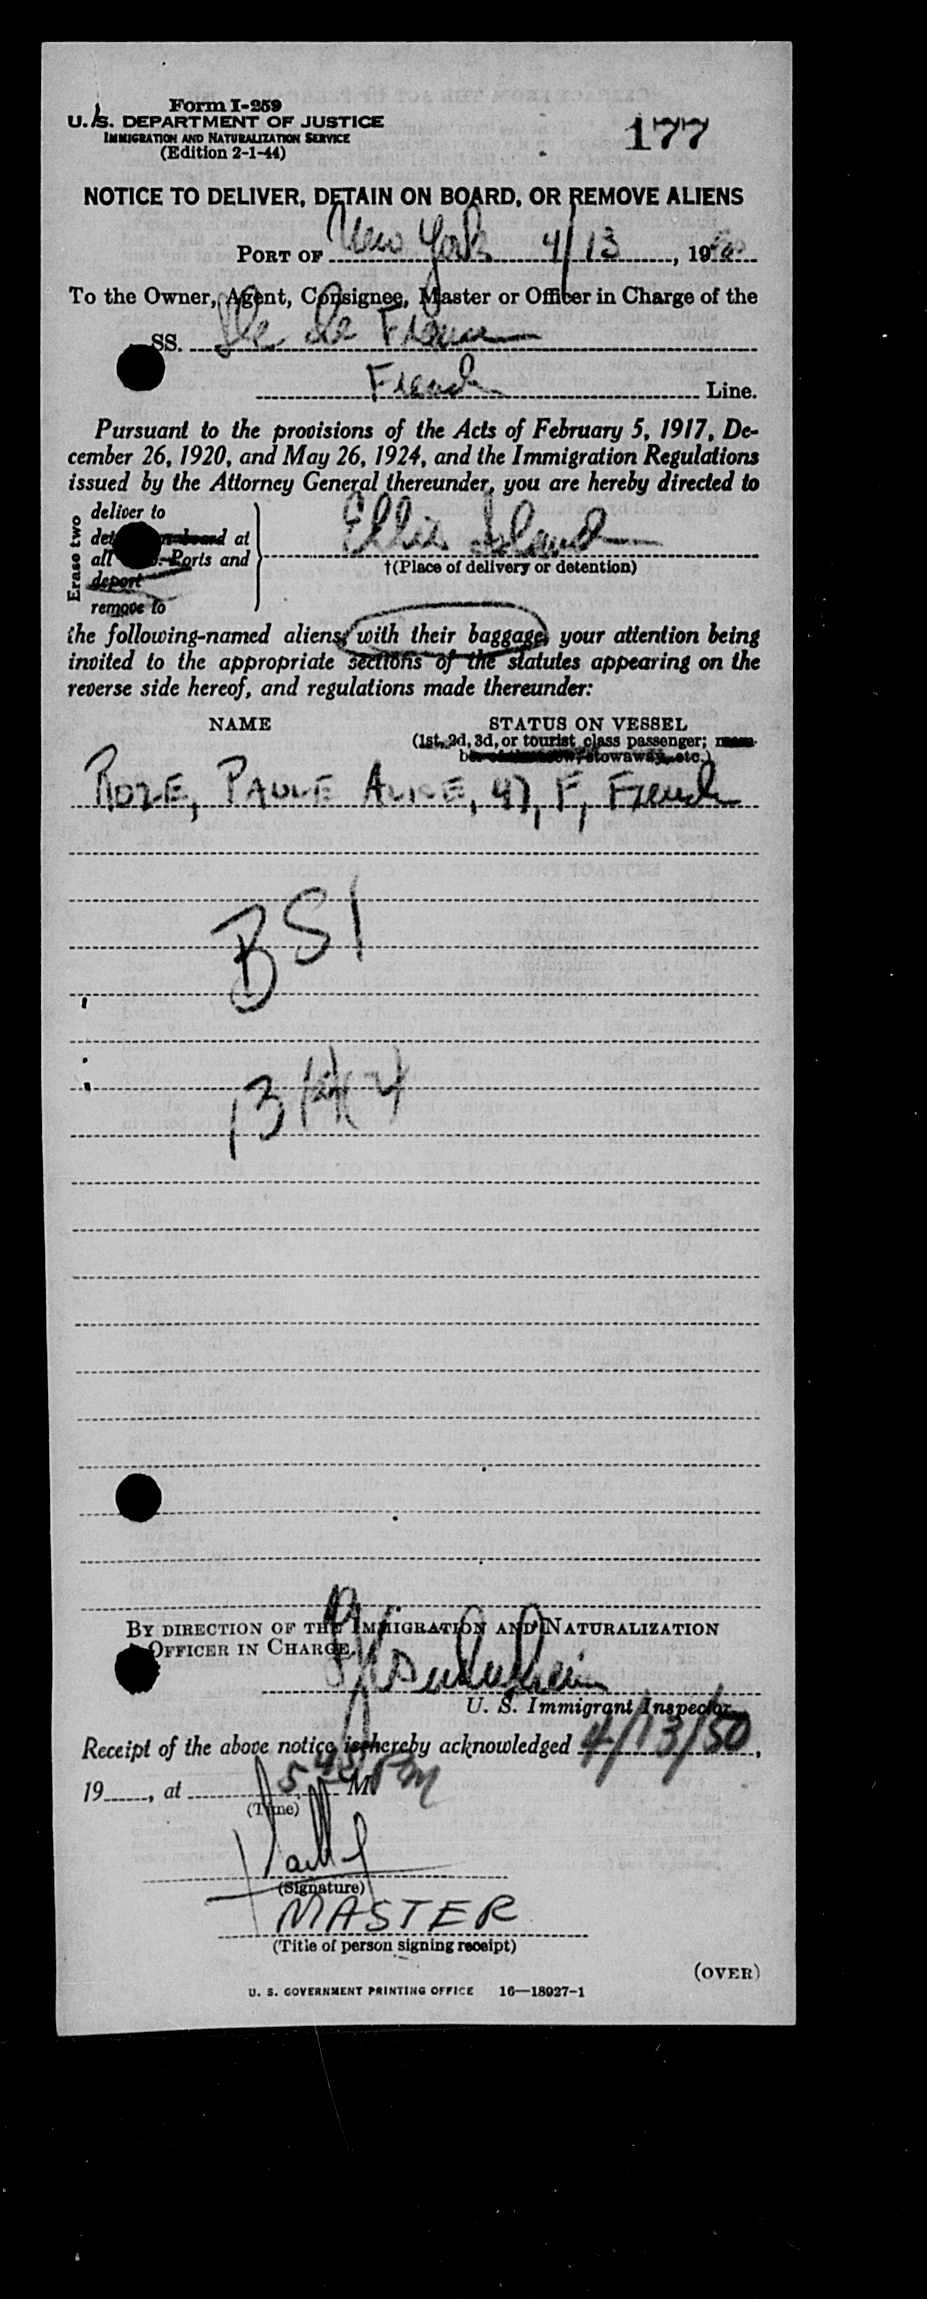 Form I-259
U. S. DEPARTMENT OF JUSTICE
IMMIGRATION AND NATURALIZATION SERVICE
(Edition 2-1-44)
177
NOTICE TO DELIVER, DETAIN ON BOARD, OR REMOVE ALIENS
PORT OF New York 4/13, 1950
To the Owner, Agent, Consignee, Master or Officer in Charge of the
SS. Ile de France
French Line.
Pursuant to the provisions of the Acts of February 5, 1917, De-
cember 26, 1920, and May 26, 1924, and the Immigration Regulations
issued by the Attorney General thereunder, you are hereby directed to
Erase two
deliver to
at
all Ports and
deport
remove to
Ellis Island
†(Place of delivery or detention)
the following-named aliens, with their baggage, your attention being
invited to the appropriate sections of the statutes appearing on the
reverse side hereof, and regulations made thereunder:
NAME STATUS ON VESSEL
(1st, 2d, 3d, or tourist class passenger; mem-
stowaway, etc.)
ROZE, PAULE ALICE, 47, F, French
BSI
BY DIRECTION OF THE IMMIGRATION AND NATURALIZATION
OFFICER IN CHARGE.
U. S. Immigrant Inspector.
Receipt of the above notice is hereby acknowledged 4/13/50,
19____, at M.
(Time)
(Signature)
MASTER
(Title of person signing receipt)
(OVER)
U. S. GOVERNMENT PRINTING OFFICE 16—18927-1